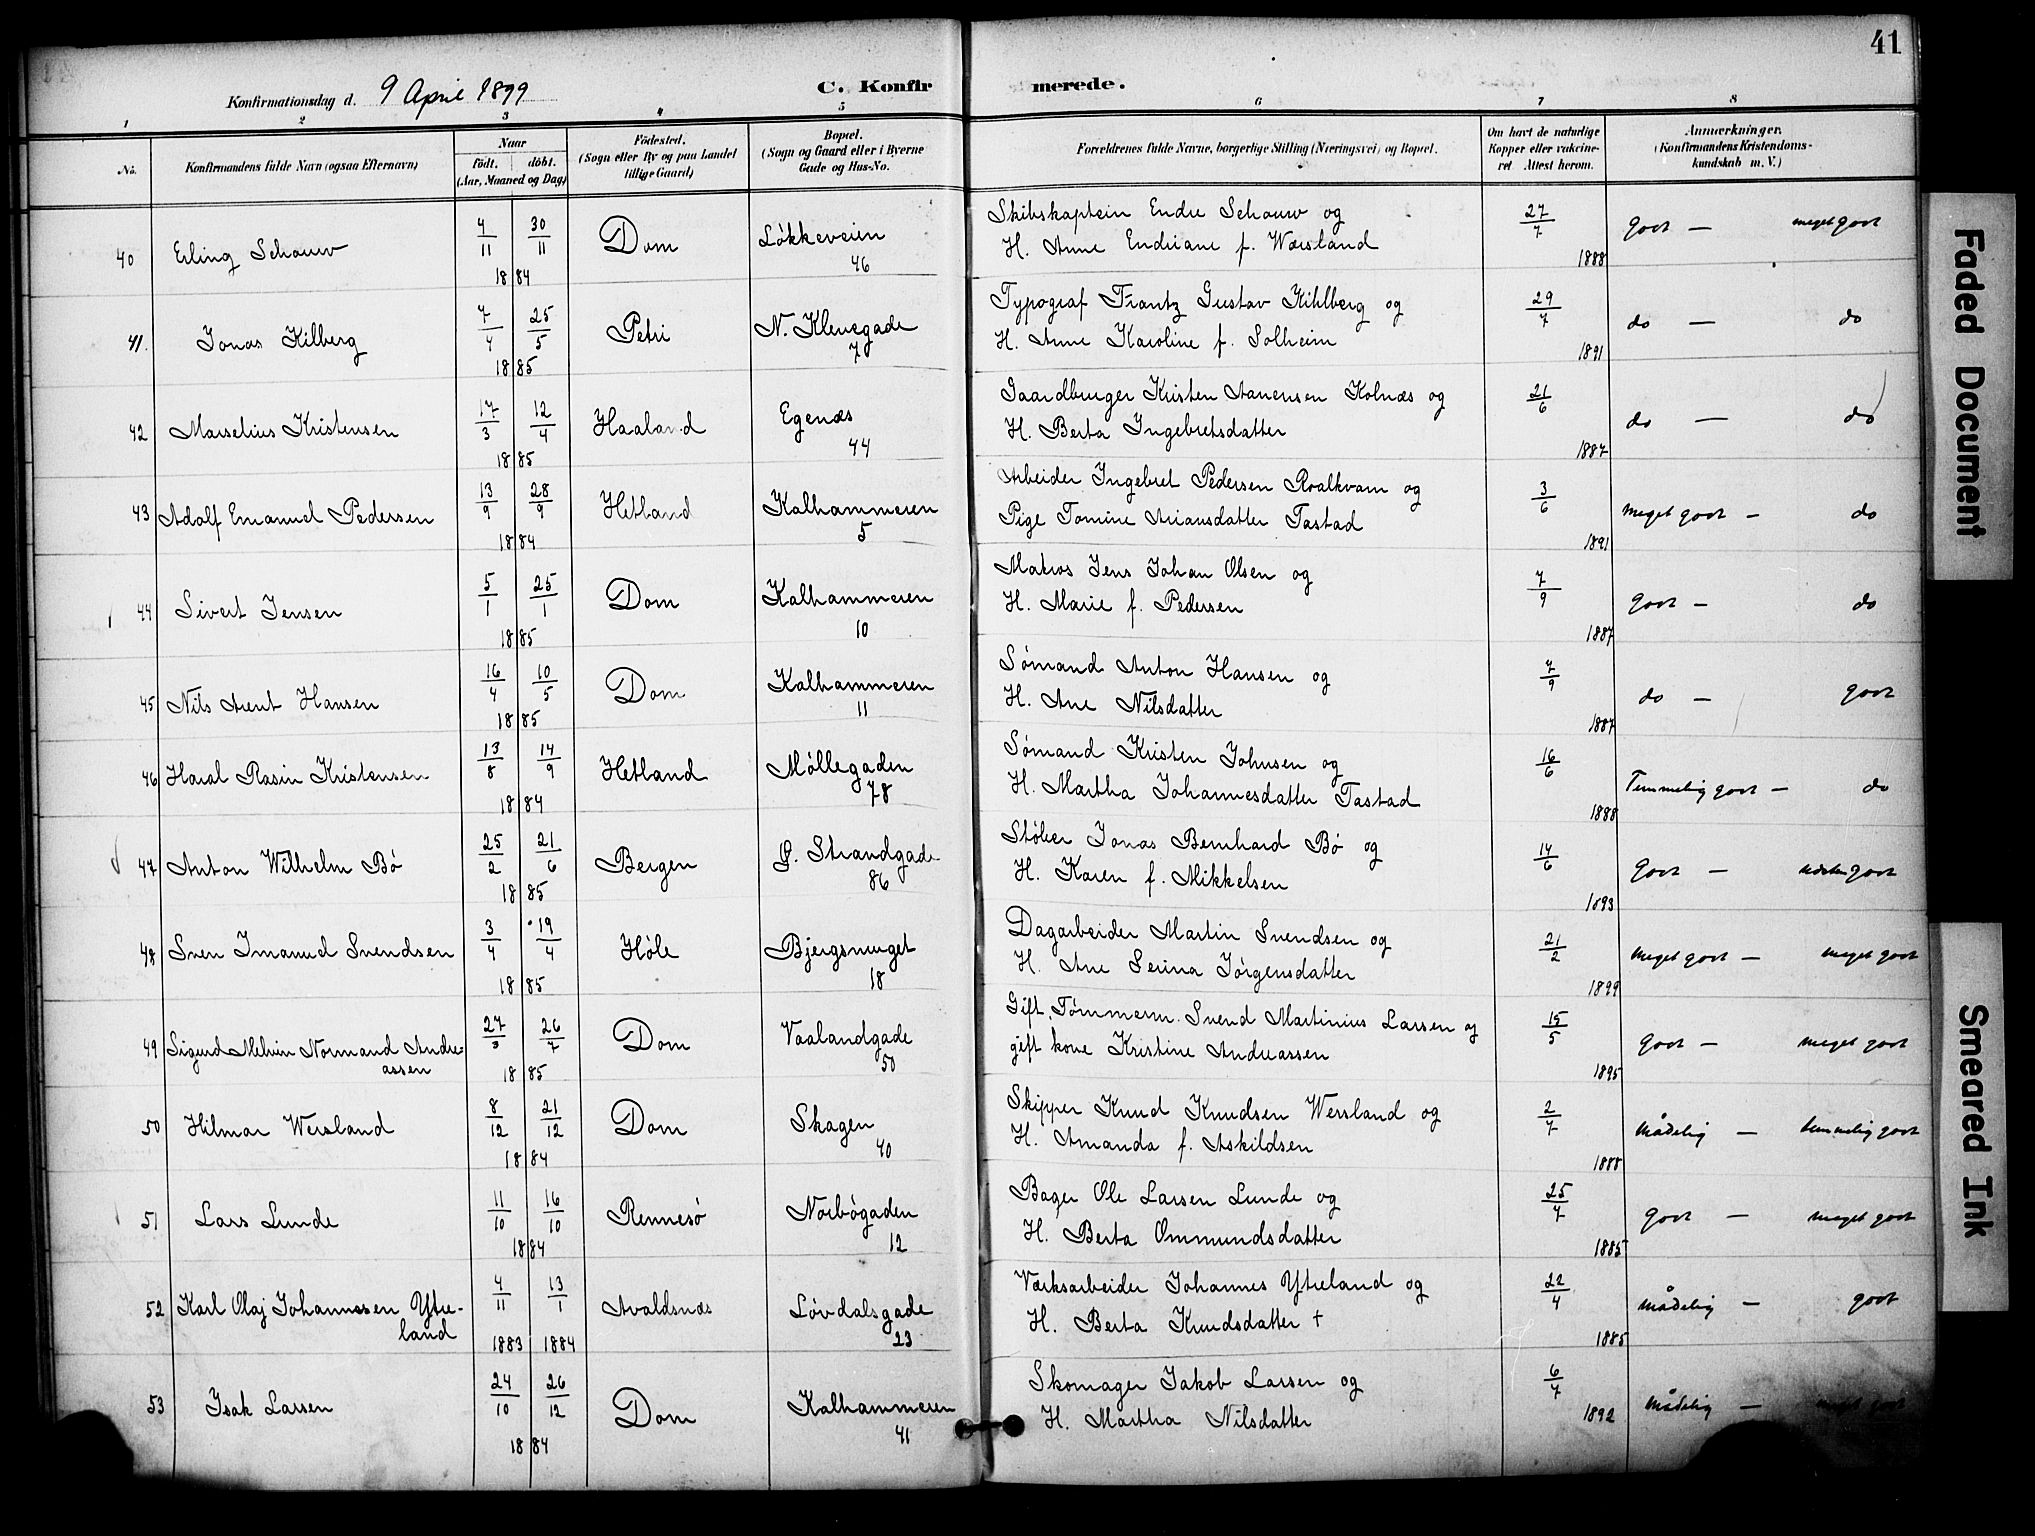 41
Konfirmationsdag d. 9 April 1899
C. Konfirmerede.
1 2 3 4 5 6 7 8
No.
Konfirmandens fulde Navn (ogsaa Efternavn)
Naar
født. döbt.
(Aar, Maaned og Dag)
Födested.
(Sogn eller By og paa Landet
tillige Gaard)
Bopæl.
(Sogn og Gaard eller i Byerne
Gade og Hus-No.
Forældrenes fulde Navne, borgerlige Stilling (Næringsvei) og Bopæl.
Om havt de naturlige
Kopper eller vakcine-
ret. Attest herom.
Anmærkninger.
(Konfirmandens Kristendoms-
kundskab m. V.)
40 Erling Schouw 4/11 30/11 1884 Dom Løkkeveien 46
Skibskaptein Endre Schouw og
H. Anne Endriane f. Wersland
27/7 1888 godt — meget godt
41. Jonas Kilberg 7/4 25/5 1885 Petri N. Klevegade 7
Typograf Frantz Gustav Kihlberg og
H. Anne Karoline f. Solheim
29/7 1891 do — do
42 Marselius Kristensen 17/3 12/4 1885 Haaland Egenæs 44
Gaardbruger Kristen Aanensen Kolnæs og
H. Berta Ingebretsdatter
21/6 1887 do — do
43 Adolf Emanuel Pedersen 13/9 28/9 1884 Hetland Kalhammeren 5
Arbeider Ingebret Pedersen Roalkvam og
Pige Tomine Ariansdatter Tastad
3/6 1891 meget godt — do
44 Sivert Jensen 5/1 25/1 1885 Dom Kalhammeren 10
Matros Jens Johan Olsen og
H. Marie f. Pedersen
7/9 1887 godt — do
45 Nils Arent Hansen 16/4 10/5 1885 Dom Kalhammeren 11
Sømand Anton Hansen og
H. Ane Nilsdatter
7/9 1887 do — godt
46 Haral Rasin Kristensen 13/8 14/9 1884 Hetland Møllegaden 78
Sømand Kristen Johnsen og
H. Martha Johannesdatter Tastad
16/6 1888 Temmelig godt — do
47 Anton Wilhelm Bö 25/2 21/6 1885 Bergen Strandgade 86
Støber Jonas Bernhard Bø og
H. Karen f. Mikkelsen
14/6 1893 godt — godt
48 Sven Imanuel Svendsen 3/4 19/4 1885 Høle Bjergsmuget 18
Dagarbeider Martin Svendsen og
H. Ane Serina Jørgensdatter
21/2 1899 meget godt — meget godt
49 Sigurd Melvin Normand Andre-
assen 27/3 26/7 1885 Dom Vaalandgade 50
Gift Tømmerm. Svend Martinius Larsen og
gift kone Kristine Andreassen
15/5 1895 godt — meget godt
50 Hilmar Wersland 8/12 21/12 1884 Dom Skagen 40
Skipper Knud Knudsen Wersland og
H. Amanda f. Askildsen
2/7 1888 mådelig — temmelig godt
51 Lars Lunde 11/10 16/10 1884 Rennesö Norbøgaden 12
Bager Ole Larsen Lunde og
H. Berta Ommundsdatter
25/7 1885 godt — meget godt
52 Karl Olaj Johannesen Ytre-
land 4/11 1883 13/1 1884 Avaldsnæs Løvdalsgade 23
Værksarbeider Johannes Ytreland og
H. Berta Knudsdatter †
22/4 1885 mådelig — godt
53 Isak Larsen 24/10 26/12 1884 Dom Kalhammeren 41
Skomager Jakob Larsen og
H. Martha Nilsdatter
6/7 1892 mådelig — meget godt
Faded Document
Smeared Ink